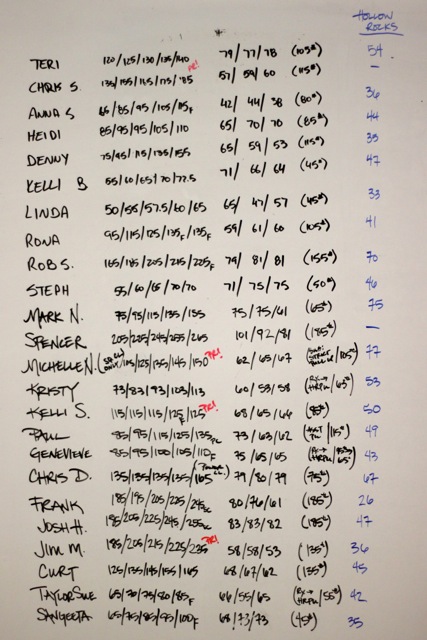 HOLLOW ROCKS
TERI 120/125/130/135/140 79/77/78 (105#) 54
PR!
CHRIS S. 135/155/165/175/185 57/59/60 (115#) –
ANNA S 65/85/95/105/115F 42/44/38 (80#) 36
HEIDI 85/95/95/105/110 65/70/70 (85#) 44
DENNY 75/95/115/135/155 65/59/53 (115#) 35
KELLI B 55/60/65/70/72.5 71/66/64 (45#) 47
LINDA 50/55/57.5/60/65 65/47/57 (45#) 33
RONA 95/115/125/135F/135F 59/61/60 (105#) 41
ROB S. 165/185/205/215/225F 79/81/81 (155#) 70
STEPH 55/60/65/70/70 71/75/75 (50#) 46
MARK N. 75/95/115/135/155 75/75/61 (65#) 75
SPENCER 205/225/245/255/265 101/92/81 (185#) –
MICHELLE N. 115/125/135/145/150 PR! 62/65/67 77
KRISTY 73/83/93/103/113 60/53/58 53
KELLI S. 115/115/115/125F/125 PR! 68/65/64 (85#) 50
PAUL 85/95/115/125/135PC 73/63/62 49
GENEVIEVE 85/95/100/105/110F 75/65/65 43
CHRIS D. 135/135/135/135/165 79/80/79 (75#) 67
FRANK 185/195/205/225/245PC 80/76/61 (185#) 26
JOSH H. 185/205/225/245/255PC 83/83/82 (185#) 47
JIM M. 185/205/215/225/235 PR! 58/58/53 (135#) 36
CURT 125/135/145/155/165 68/67/62 (135#) 45
TAYLOR SUE 65/70/75/80/85F 66/55/65 42
SANGEETA 65/75/85/95/100F 68/73/73 (45#) 35